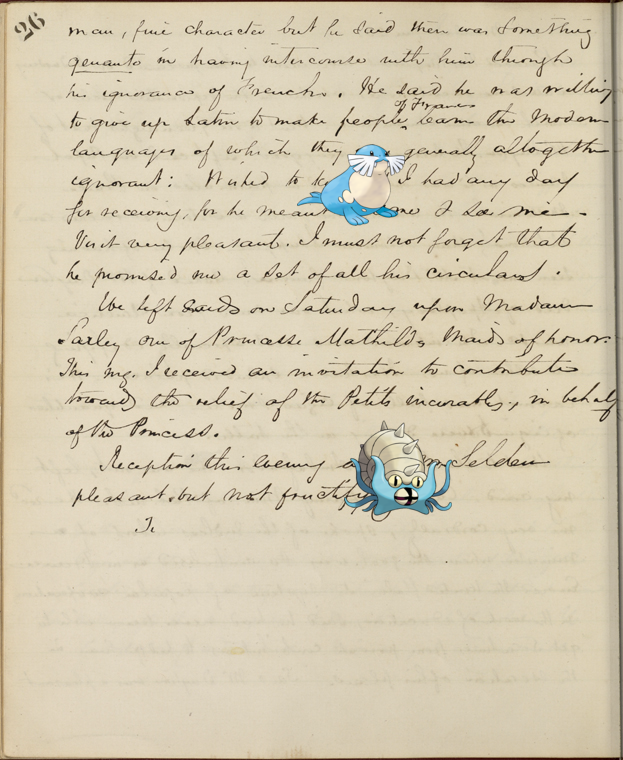 26
man, fine character but he said there was something
genanto in having intercourse with him through
his ignorance of French. He said he was willing
of France
to give up Latin to make people learn the modern
languages of which they generally altogether
ignorant: Wished to I had any day
for receiving, for he meant me I see me.
Visit very pleasant. I must not forget that
he promised me a set of all his circulars.
We left cards on Saturday upon Madam
Sarley one of Princesse Mathilde's Maids of honor.
This mg. I received an invitation to contribute
towards the relief of the Petits incurables, in behalf
of the Princess.
Reception this evening Selden
pleasant but not